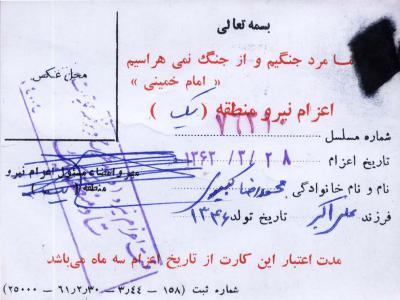 بسمه تعالی
ما مرد جنگیم و از جنگ نمی هراسیم
« امام خمینی »
محل عکس
اعزام نیرو منطقه ( یک )
شماره مسلسل
تاریخ اعزام ۱۳۶۲/۳/۲۸
مهر و امضای مسئول اعزام نیرو
منطقه ( یک )
نام و نام خانوادگی محمدرضا
فرزند علی اکبر تاریخ تولد ۱۳۴۶
مدت اعتبار این کارت از تاریخ اعزام سه ماه می‌باشد
شماره ثبت (۱۵۸ — ۳ر۴۴ — ۶۱٫۲٫۳۰ — ۲۵۰۰۰)